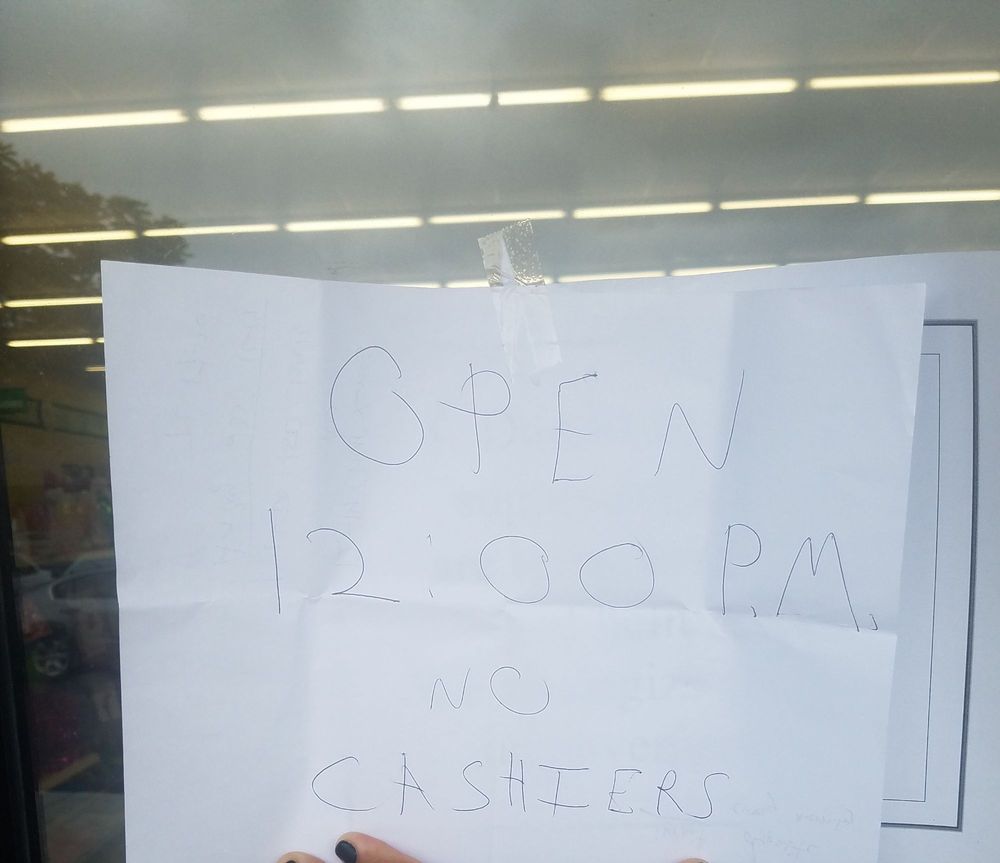 OPEN
12:00 P.M.
NO
CASHIERS